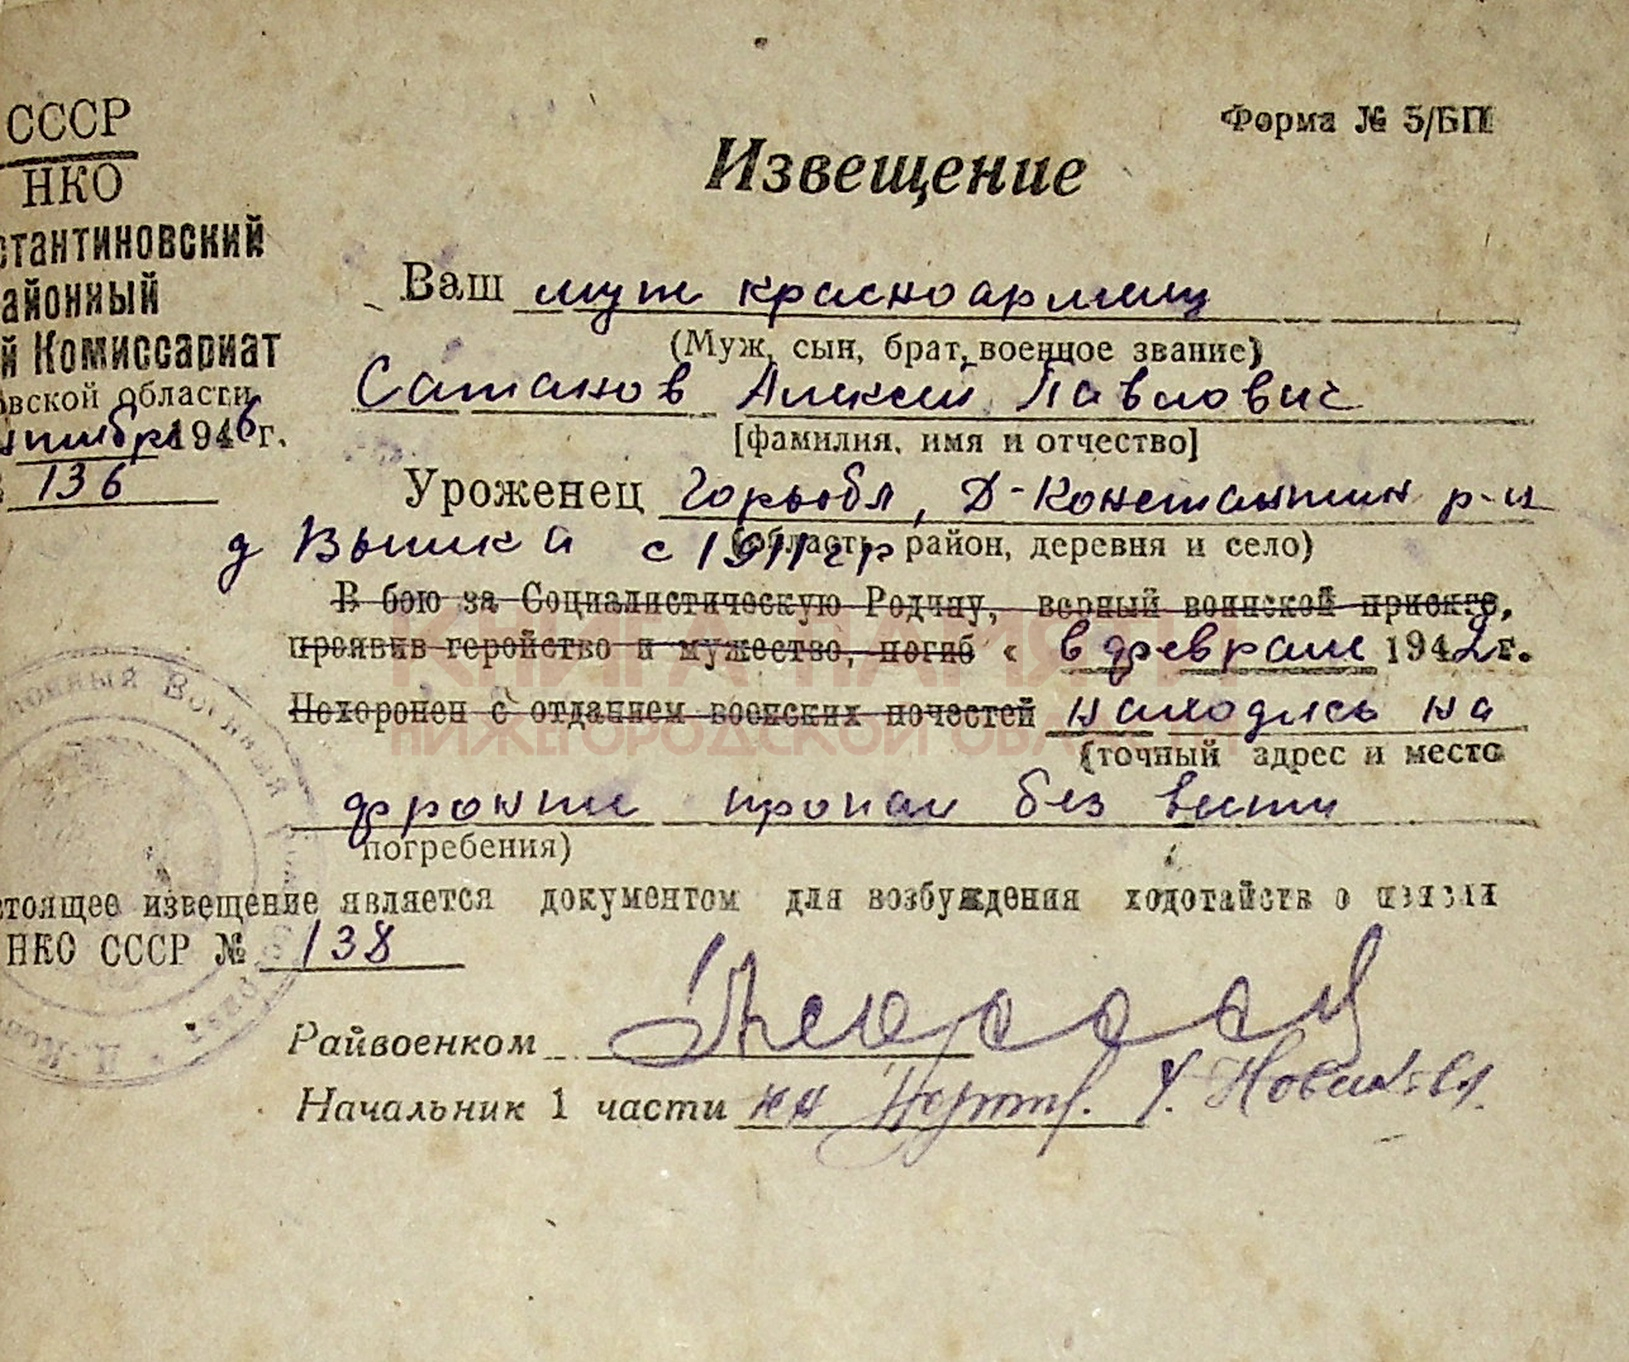 СССР
НКО
стантиновский
айонный
й Комиссариат
вской области
1946г.
136
Форма № 5/БП
Извещение
Ваш муж красноармеец
(Муж, сын, брат, военное звание)
Сатанов Алексей Павлович
[фамилия, имя и отчество]
Уроженец Горьобл, Д-Константин р-н
д Вышка с 1911 гр
(область, район, деревня и село)
В бою за Социалистическую Родину, верный воинской присяге,
проявив геройство и мужество, погиб « в феврале 1942г.
Похоронен с отданием воинских почестей находясь на
(точный адрес и место
фронте пропал без вести
погребения)
стоящее извещение является документом для возбуждения ходотайств о пенсии
НКО СССР № 138
Райвоенком
Начальник 1 части
КНИГА ПАМЯТИ
НИЖЕГОРОДСКОЙ ОБЛАСТИ